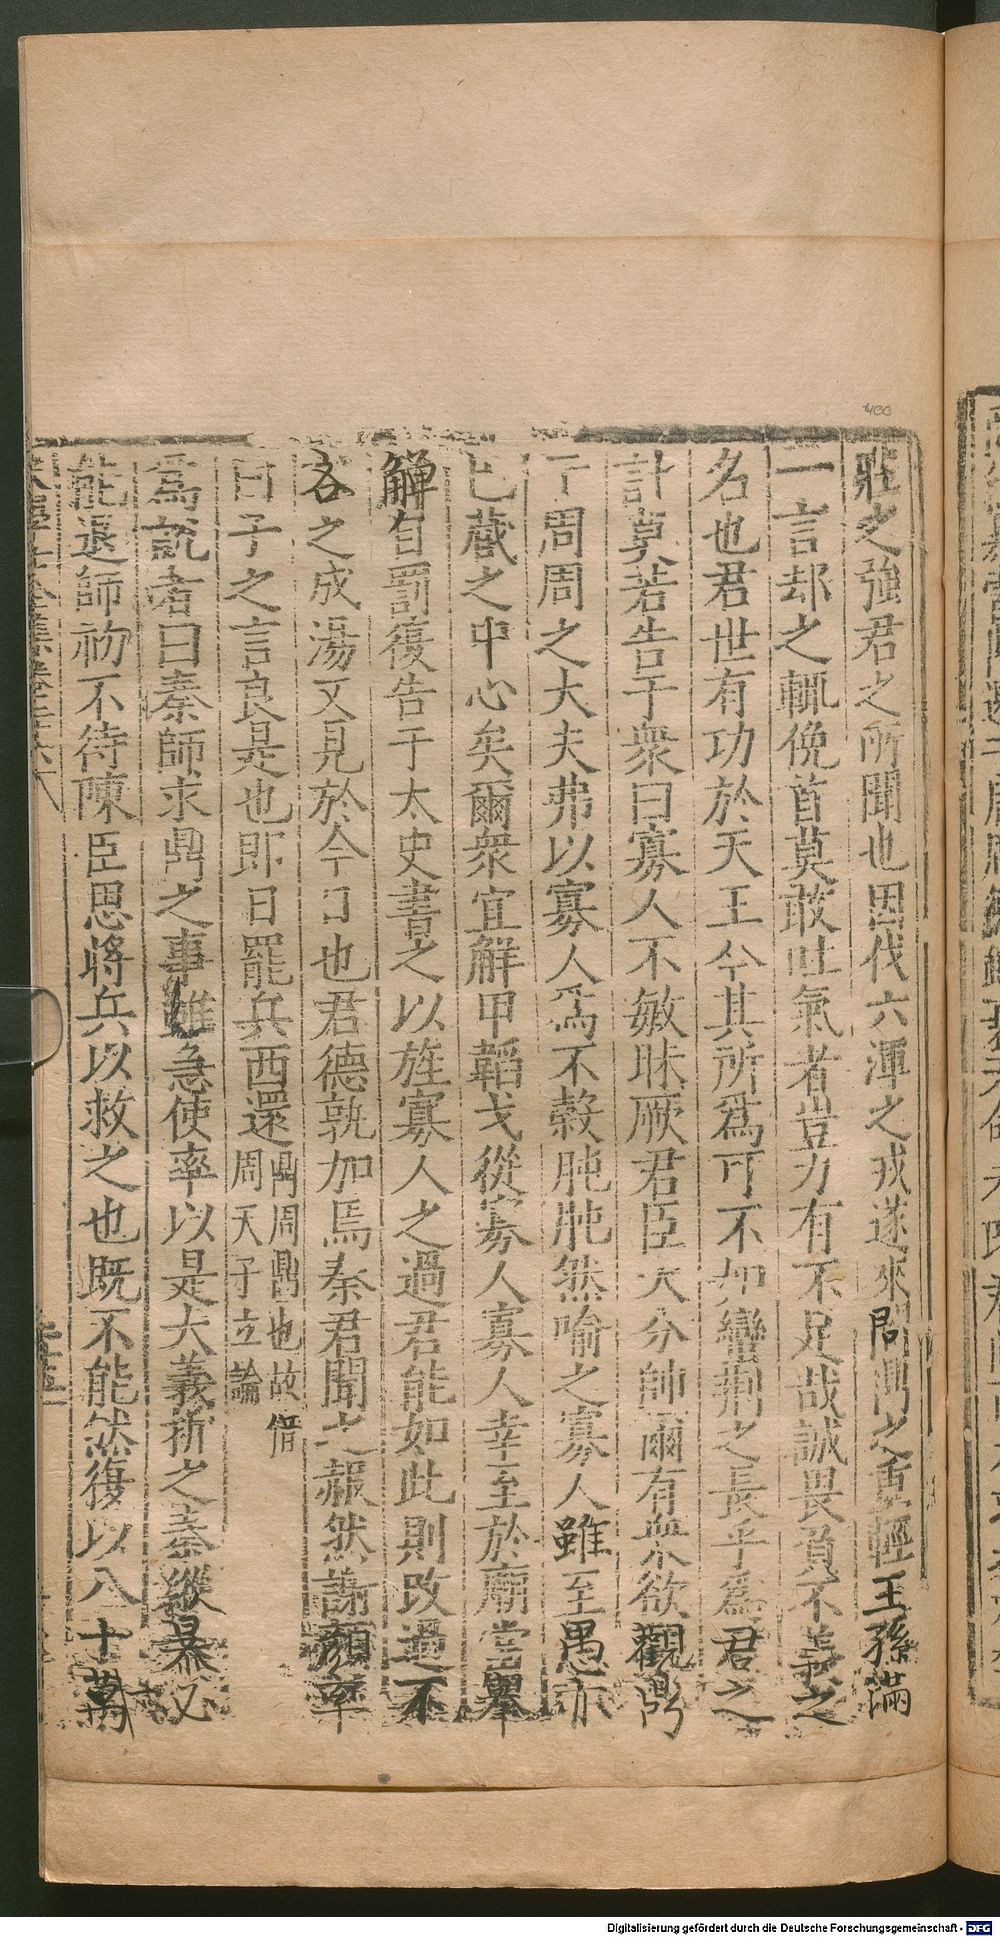 莊之強君之所聞也因伐六渾之戎遂來問鼎之重輕王孫滿
一言却之輒俛首莫敢吐氣者豈力有不足哉誠畏負不義之
名也君世有功於天王今其所爲可不如蠻荆之長乎爲君之
計莫若告于衆曰寡人不敏昧厥君臣大分帥爾有衆欲觀鼎
于周周之大夫弗以寡人爲不穀肫肫然喻之寡人雖至愚亦
已蔵之中心矣爾衆宜解甲韜戈從寡人寡人幸至於廟堂舉
觶自罰復告于太史書之以旌寡人之過君能如此則改過不
吝之成湯又見於今日也君德孰加焉秦君聞之赧然謝顏率
曰子之言良是也即日罷兵西還鼎周鼎也故借
周天子立論
爲說者曰秦師求鼎之事雖急使率以是大義折之秦縱暴必
能還師初不待陳臣思將兵以救之也既不能然復以八十萬
400
Digitalisierung gefördert durch die Deutsche Forschungsgemeinschaft - DFG